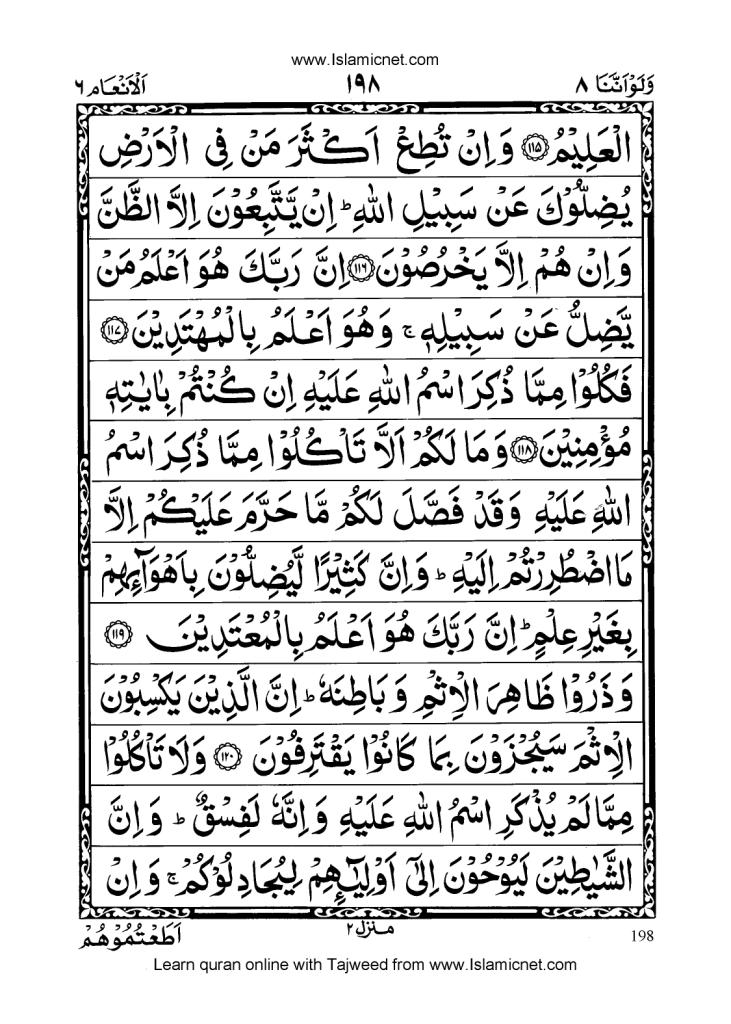 www.Islamicnet.com
وَلَوْاَنَّنَا ٨ ١٩٨ اَلْاَنْعَام ٦
الْعَلِيْمُ ﴿١١٥﴾ وَاِنْ تُطِعْ اَكْثَرَ مَنْ فِى الْاَرْضِ
يُضِلُّوْكَ عَنْ سَبِيْلِ اللهِ ؕ اِنْ يَّتَّبِعُوْنَ اِلَّا الظَّنَّ
وَاِنْ هُمْ اِلَّا يَخْرُصُوْنَ ﴿١١٦﴾ اِنَّ رَبَّكَ هُوَ اَعْلَمُ مَنْ
يَّضِلُّ عَنْ سَبِيْلِهٖ ۚ وَهُوَ اَعْلَمُ بِالْمُهْتَدِيْنَ ﴿١١٧﴾
فَكُلُوْا مِمَّا ذُكِرَ اسْمُ اللهِ عَلَيْهِ اِنْ كُنْتُمْ بِاٰيٰتِهٖ
مُؤْمِنِيْنَ ﴿١١٨﴾ وَمَا لَكُمْ اَلَّا تَاْكُلُوْا مِمَّا ذُكِرَ اسْمُ
اللهِ عَلَيْهِ وَقَدْ فَصَّلَ لَكُمْ مَّا حَرَّمَ عَلَيْكُمْ اِلَّا
مَا اضْطُرِرْتُمْ اِلَيْهِ ؕ وَاِنَّ كَثِيْرًا لَّيُضِلُّوْنَ بِاَهْوَآئِهِمْ
بِغَيْرِ عِلْمٍ ؕ اِنَّ رَبَّكَ هُوَ اَعْلَمُ بِالْمُعْتَدِيْنَ ﴿١١٩﴾
وَذَرُوْا ظَاهِرَ الْاِثْمِ وَبَاطِنَهٗ ؕ اِنَّ الَّذِيْنَ يَكْسِبُوْنَ
الْاِثْمَ سَيُجْزَوْنَ بِمَا كَانُوْا يَقْتَرِفُوْنَ ﴿١٢٠﴾ وَلَا تَاْكُلُوْا
مِمَّا لَمْ يُذْكَرِ اسْمُ اللهِ عَلَيْهِ وَاِنَّهٗ لَفِسْقٌ ؕ وَاِنَّ
الشَّيٰطِيْنَ لَيُوْحُوْنَ اِلٰٓى اَوْلِيٰٓئِهِمْ لِيُجَادِلُوْكُمْ ۚ وَاِنْ
اَطَعْتُمُوْهُمْ منزل ٢ 198
Learn quran online with Tajweed from www.Islamicnet.com